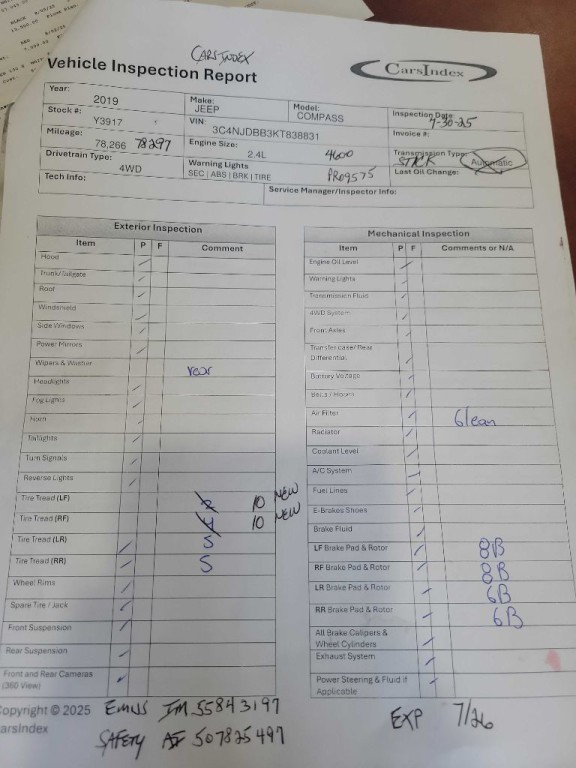 CARSINDEX
Vehicle Inspection Report
CarsIndex
Year: 2019 Make: JEEP Model: COMPASS Inspection Date: 7-30-25
Stock #: Y3917 VIN: 3C4NJDBB3KT838831 Invoice #:
Mileage: 78,266 78297 Engine Size: 2.4L 4600 Transmission Type: Automatic
Drivetrain Type: 4WD Warning Lights SEC | ABS | BRK | TIRE PR09575 Last Oil Change:
Tech Info: Service Manager/Inspector Info:
Exterior Inspection
Item P F Comment
Hood
Trunk/Tailgate
Roof
Windshield
Side Windows
Power Mirrors
Wipers & Washer rear
Headlights
Fog Lights
Horn
Taillights
Turn Signals
Reverse Lights
Tire Tread (LF) 2 10 NEW
Tire Tread (RF) 4 10 NEW
Tire Tread (LR) 5
Tire Tread (RR) 5
Wheel Rims
Spare Tire / Jack
Front Suspension
Rear Suspension
Front and Rear Cameras
(360 View)
Mechanical Inspection
Item P F Comments or N/A
Engine Oil Level
Warning Lights
Transmission Fluid
4WD System
Front Axles
Transfer case/ Rear
Differential
Battery Voltage
Belts / Hoses
Air Filter Clean
Radiator
Coolant Level
A/C System
Fuel Lines
E-Brakes Shoes
Brake Fluid
LF Brake Pad & Rotor 8B
RF Brake Pad & Rotor 8B
LR Brake Pad & Rotor 6B
RR Brake Pad & Rotor 6B
All Brake Calipers &
Wheel Cylinders
Exhaust System
Power Steering & Fluid if
Applicable
Copyright © 2025
arsIndex
IM 55843197
SAFETY 507825497
EXP 7/26